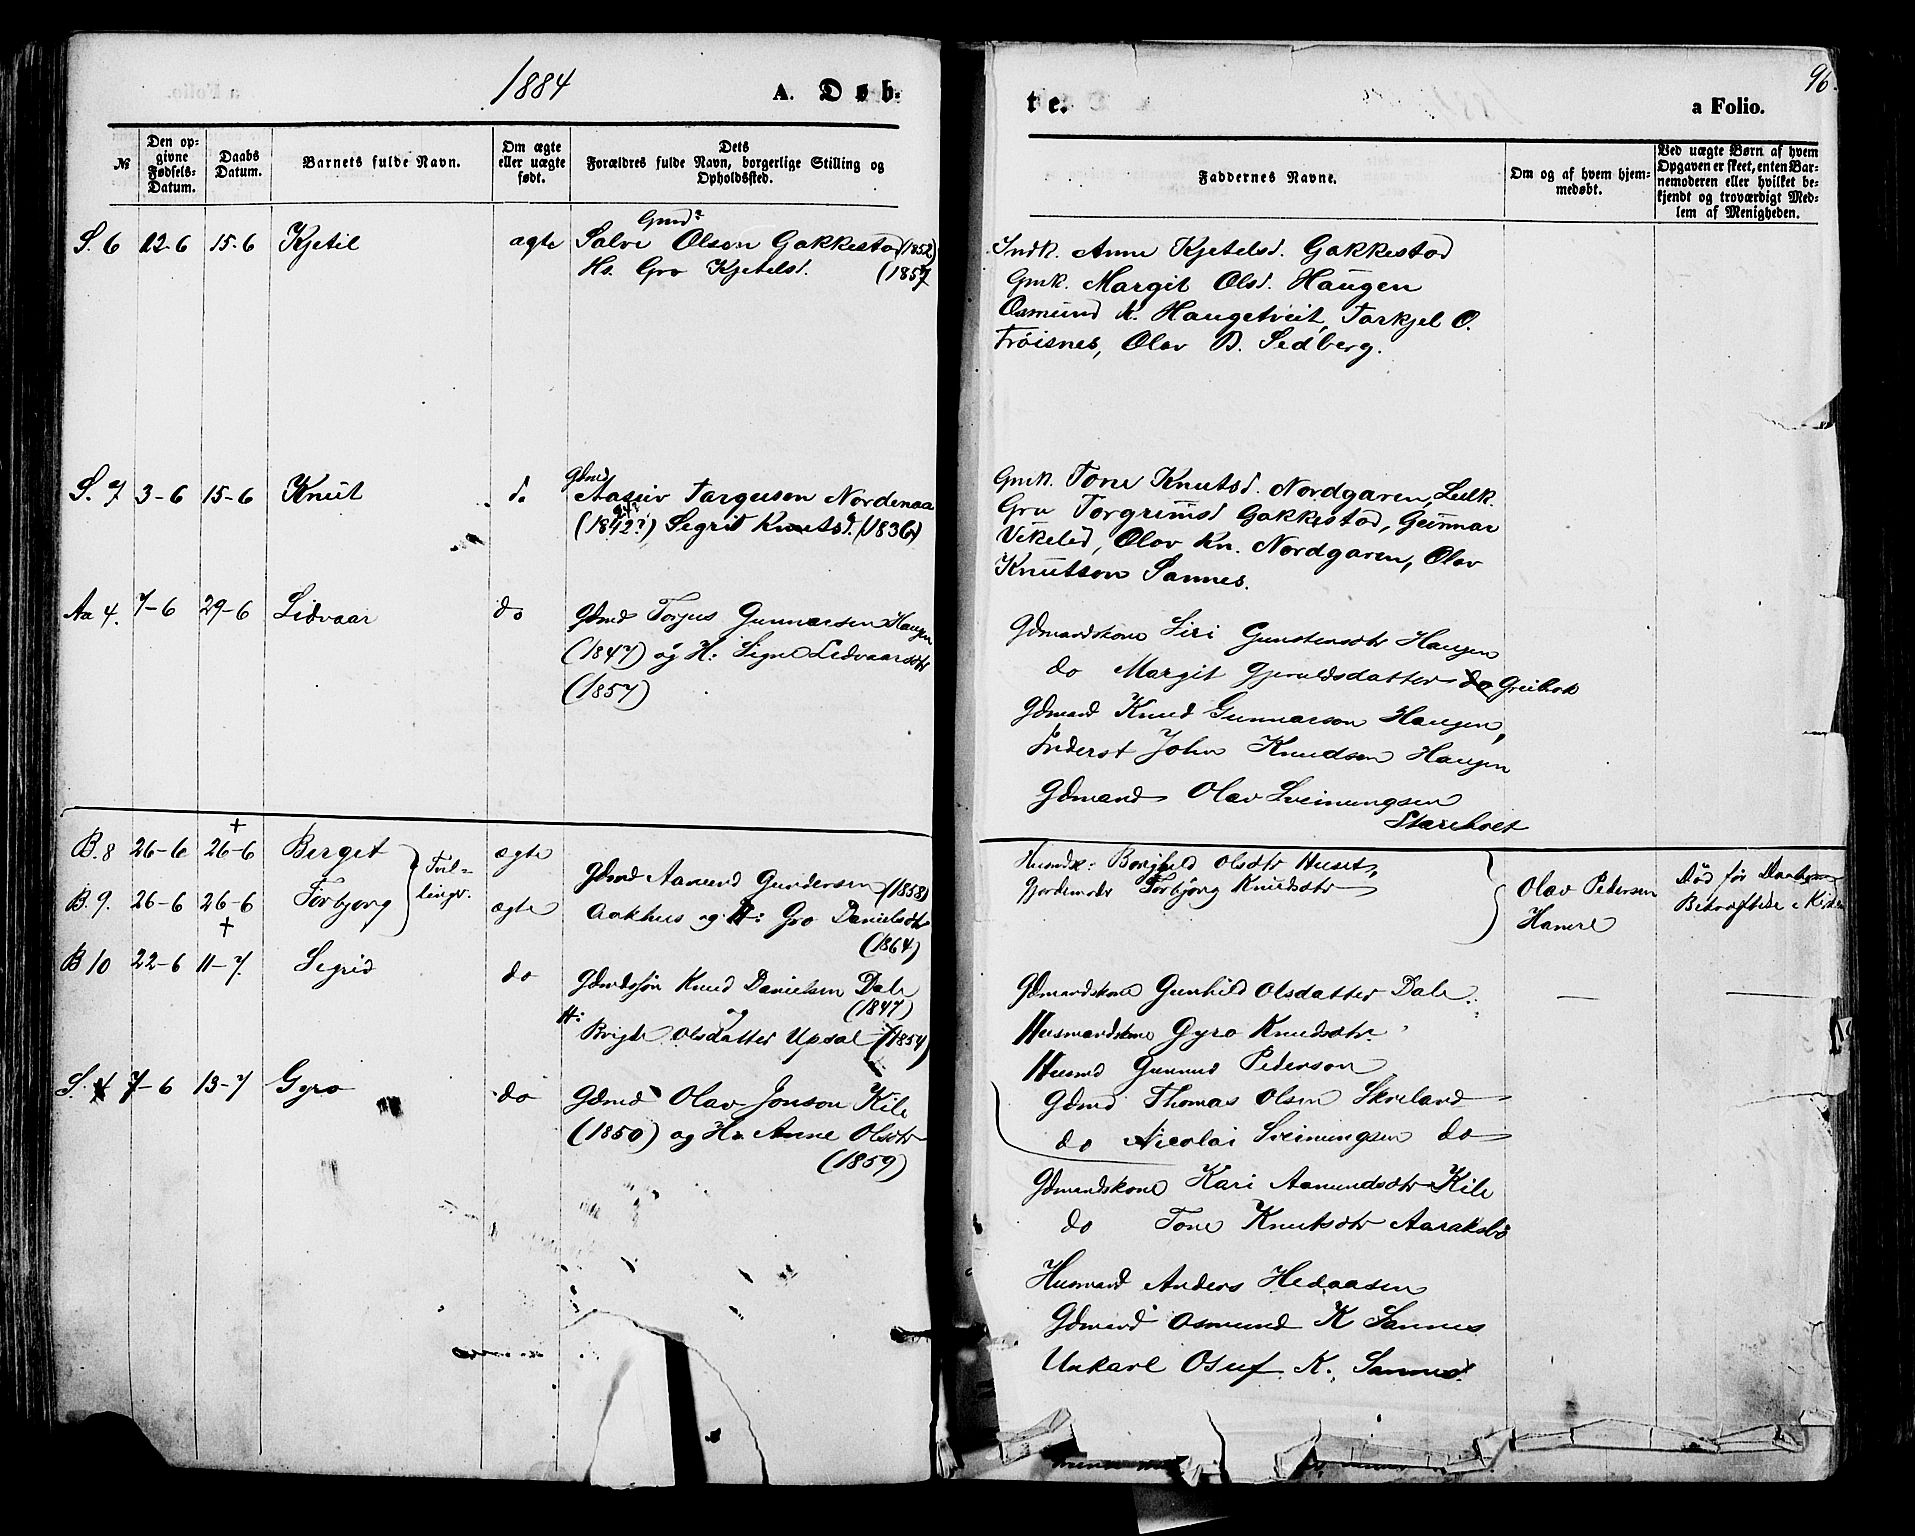 1884
A. Døb-
te.
a Folio.
96.
№
Den op-
givne
Fødsels-
Datum.
Daabs
Datum.
Barnets fulde Navn.
Om ægte
eller uægte
født.
Dets
Forældres fulde Navn, borgerlige Stilling og
Opholdssted.
Faddernes Navne.
Om og af hvem hjem-
medøbt.
Ved uægte Børn af hvem
Opgaven er skeet, enten Bar-
nemoderen eller hvilket be-
kjendt og troværdigt Med-
lem af Menigheden.
S. 6 12-6 15-6 Kjetil ægte
Salve Olson Gakkestad (1852)
Hs. Gro Kjetelsd. (1857
Indk. Anne Kjetelsd. Gakkestad
Gmk. Margit Olsd. Haugen
Osmund K. Haugetveit, Tarkjel O.
Trøisnes, Olav B. Sedberg.
S. 7 3-6 15-6 Knut do
Gdmd
Aasuv Targusen Nordenaa
(1842?) Segrid Knutsd. (1836)
Gmk. Tone Knutsd. Nordgaren,
Gru Torgrimsd Gakkestad, Gunnar
Vikeled, Olav Kn. Nordgaren, Olav
Knutson Sannes.
Aa 4. 7-6 29-6 Lidvaar do
Gdmd Torjus Gunnarsen Haugen
(1847) og H: Signe Ledvaarsdtr
(1857)
Gdmandskone Siri Gunstensdtr Haugen
do Margit Gjeruldsdatter do
Gdmand Knud Gunnarson Haugen,
Inderst John Knudsen Haugen
Gdmand Olav Sveinungsen
Stareholt
+
B. 8 26-6 26-6 Berget ægte
Tvil-
linger.
B. 9. 26-6 26-6 Torbjorg ægte
+
Gdmd Aanund Gundersen (1858)
Aakhus og H: Gro Danielsdtr
(1864)
Husmdk: Borghild Olsdtr Huset,
Gjordemoder Torbjørg Knudsdtr
Olav Pedersen
Død før
B 10 22-6 11-7 Segrid do
Gdmdssøn Knud Danielsen Dale
(1847)
og
H: Brigte Olsdatter Upsal (1854)
Gdmandskone Gunhild Olsdatter Dale
Husmandskone Gyro Knudsdtr
Husmd Gunnud Pederson
Gdmd Thomas Olsen Skreland
do Nicolai Sveinungsen do
S. 7-6 13-7 Gyro do
Gdmd Olav Jonson Kile
(1850) og H: Anne Olsdtr
(1859)
Gdmandskone Kari Aanundsdtr Kile
do Tone Knutsdtr Aaraksbø
Husmand Anders Hedaasen
Gdmand Osmund K Sannes
Unkarl Osuf K. Sannes.